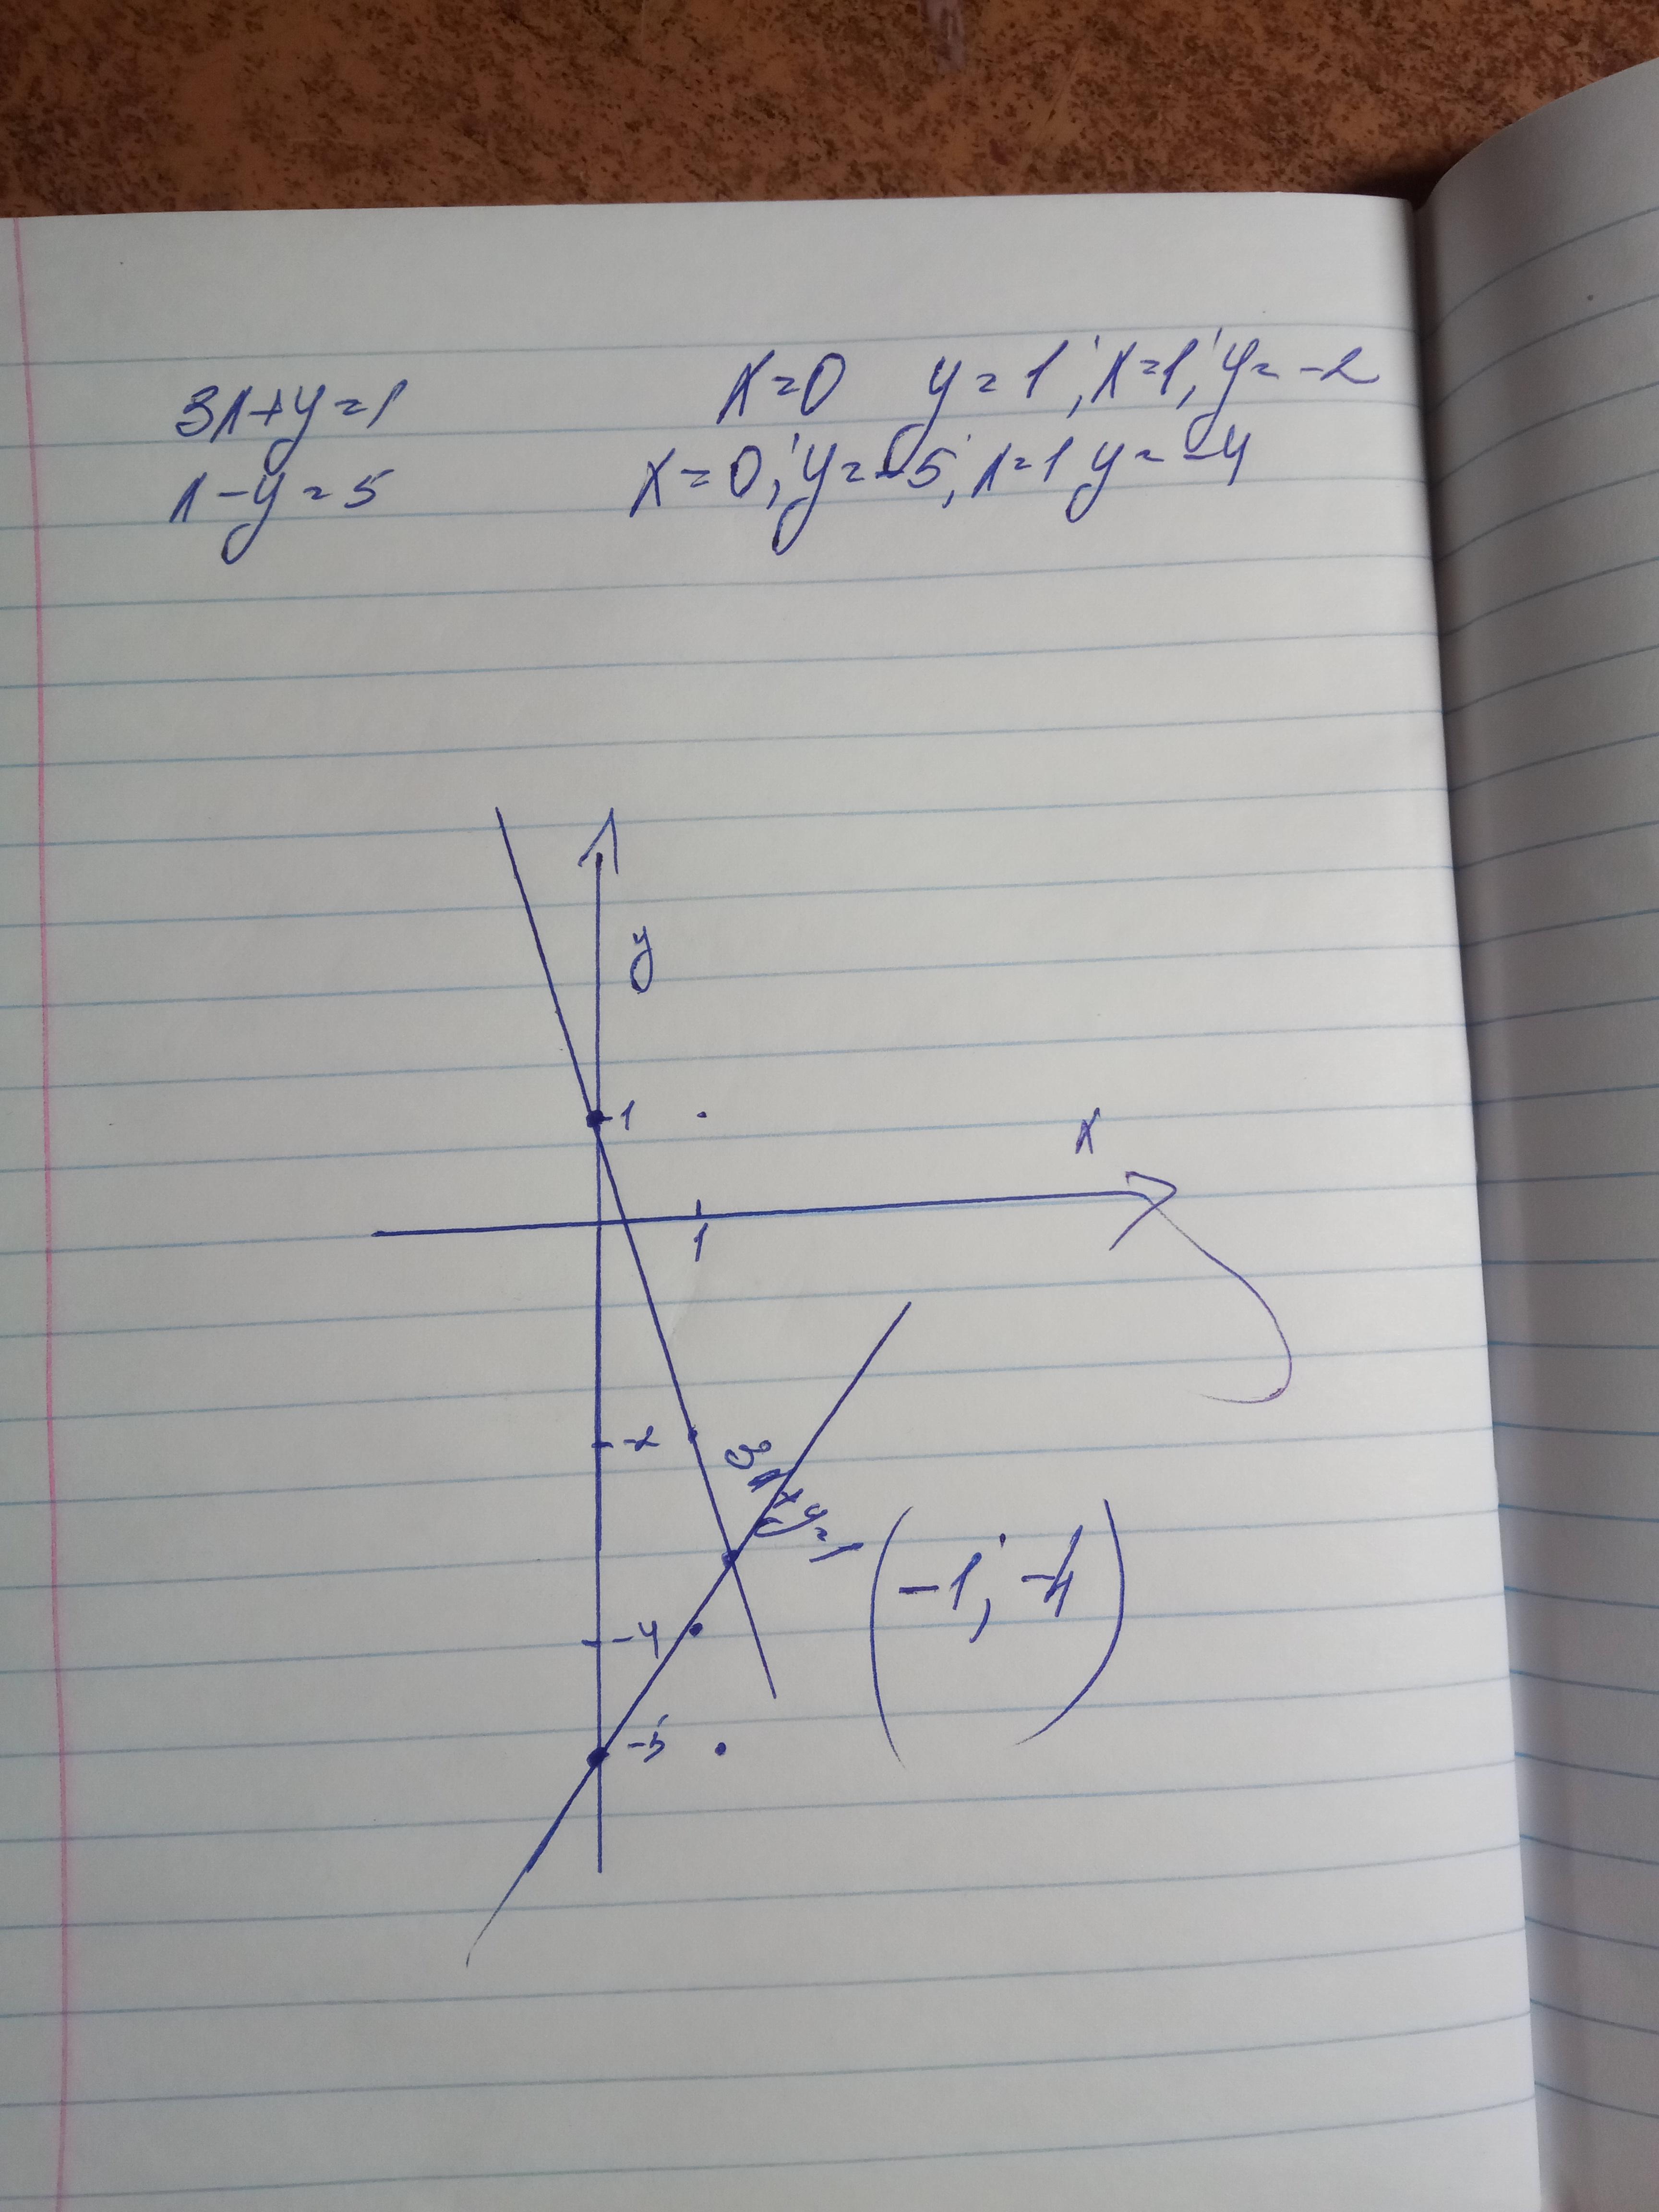 3x+y=1
x-y=5
x=0 y=1; x=1; y=-2
x=0; y=-5; x=1 y=-4
y
1
x
1
-2
3x+y=1
(-1; -4)
-4
-5